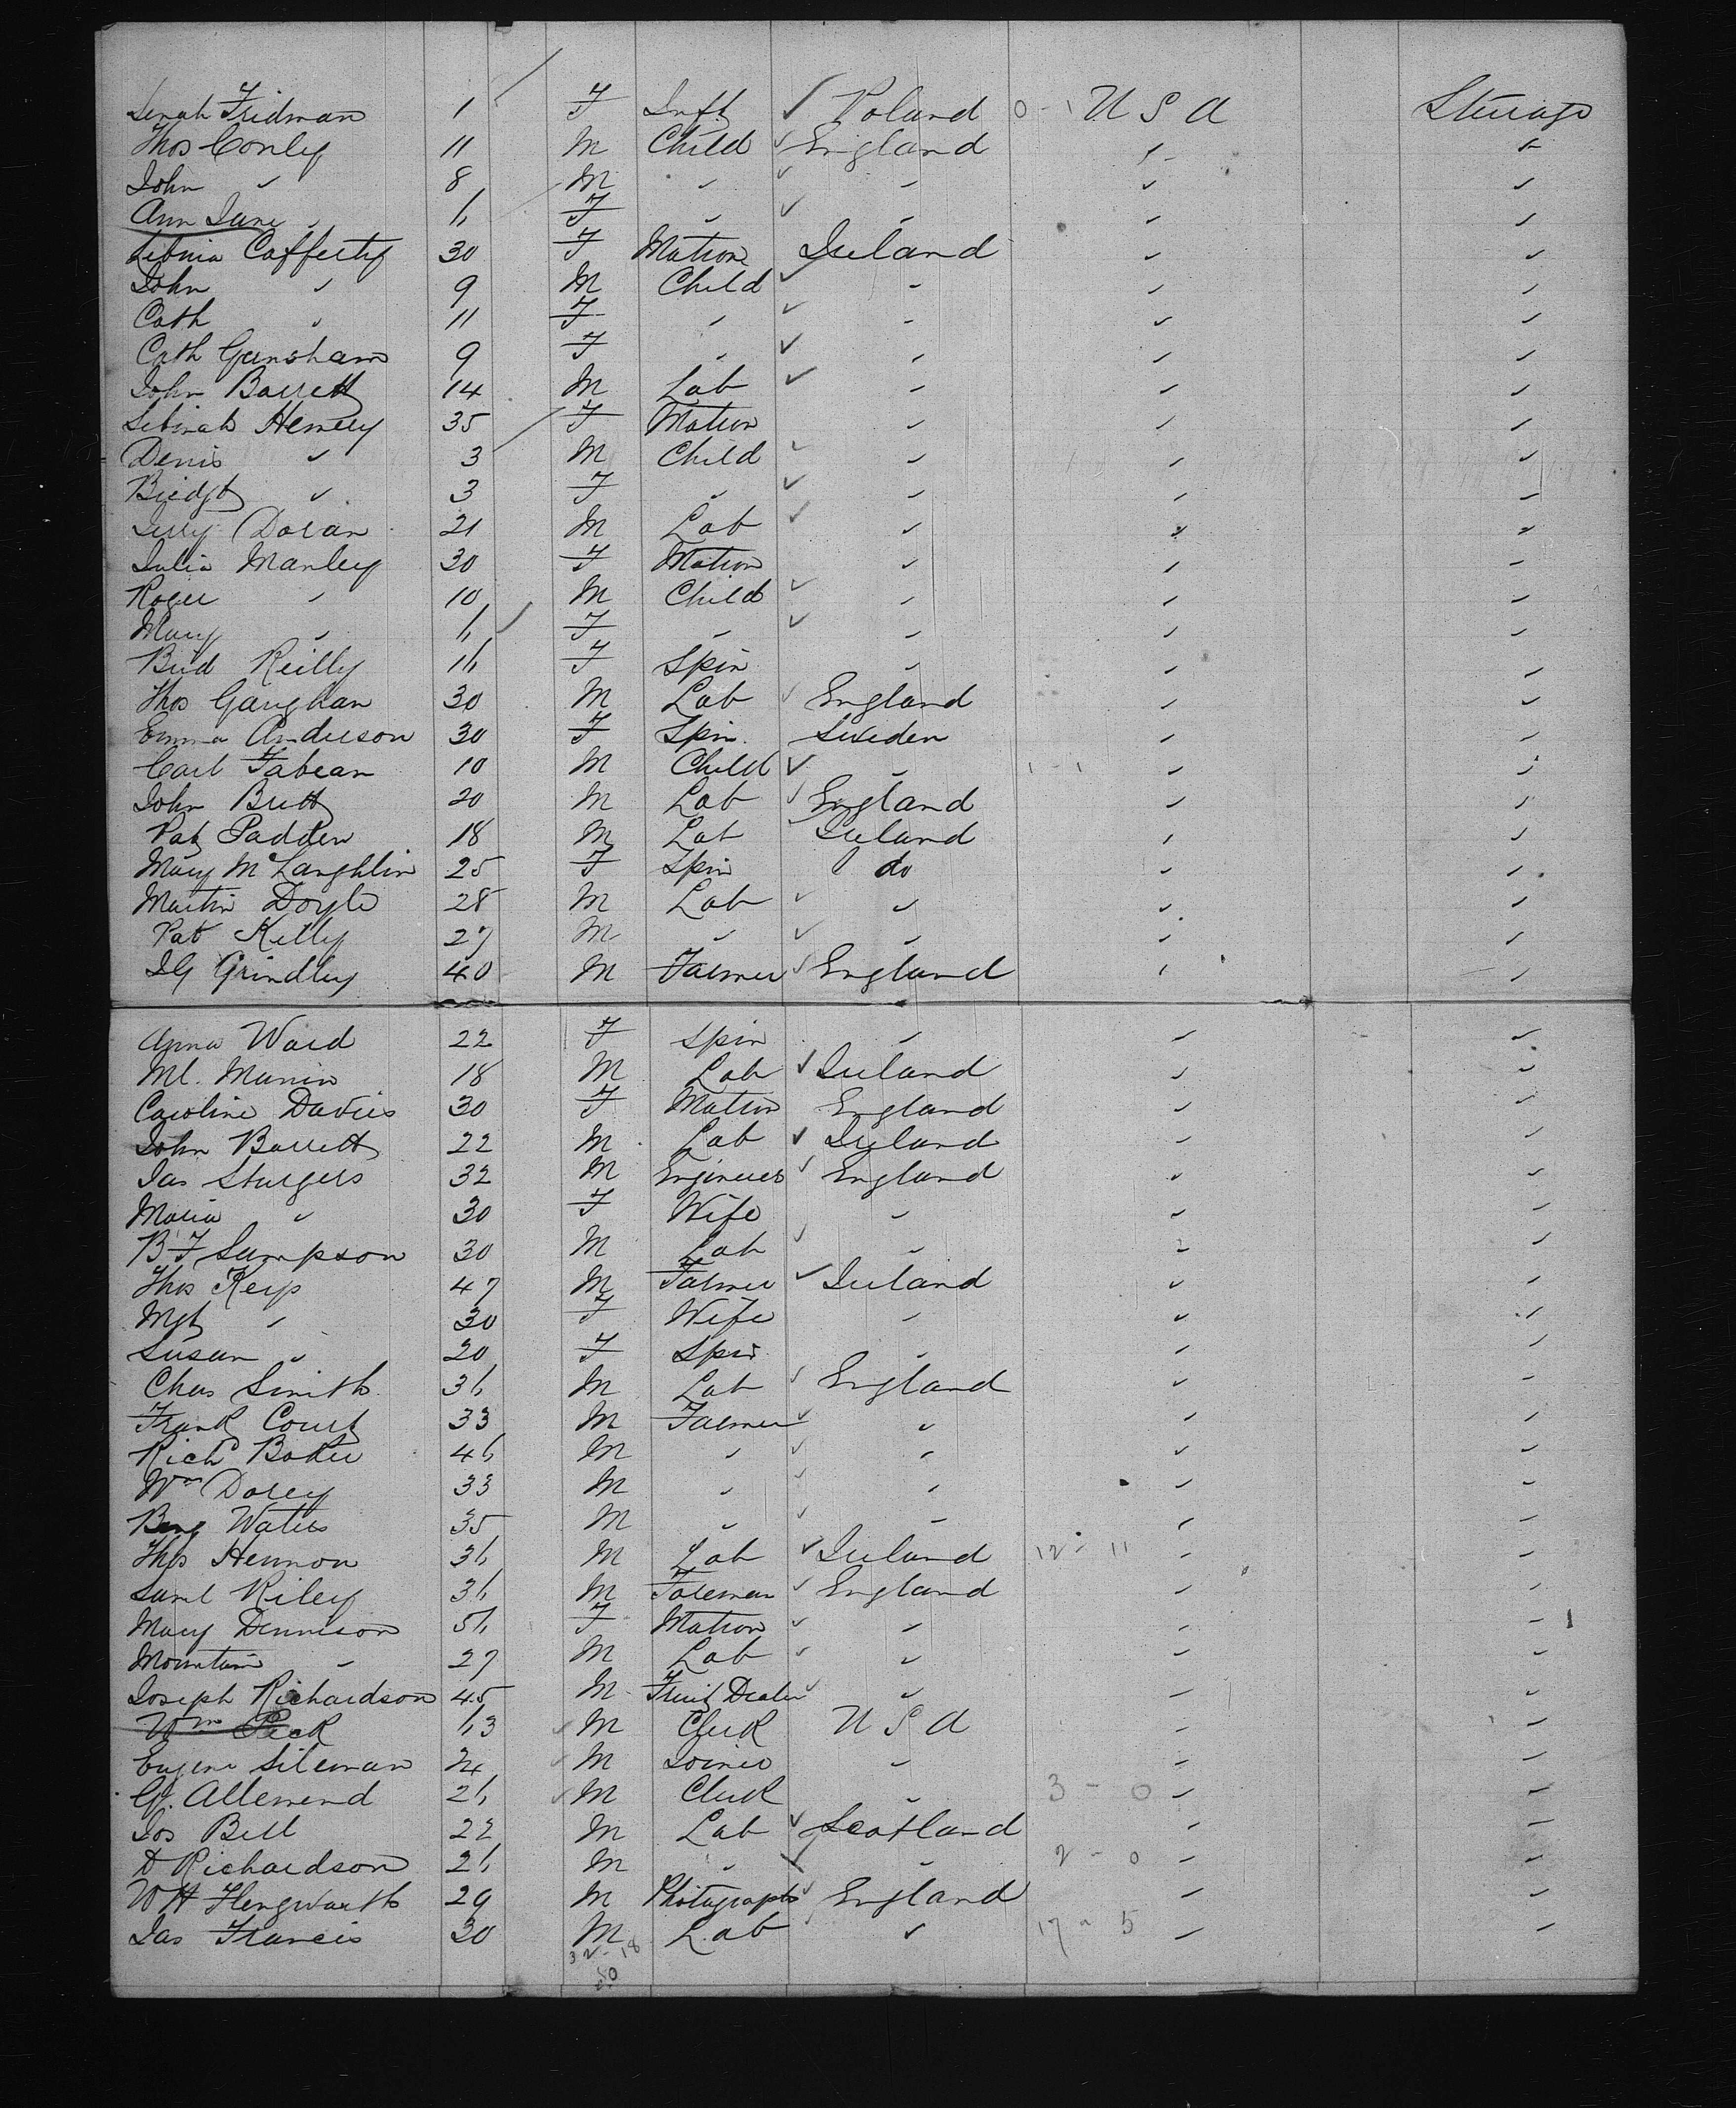 Sarah Fridman 1 F Inft ✓ Poland 0 - 1 U S A Steerage
Thos Conley 11 M Child ✓ England " "
John " 8 M " ✓ " " "
Ann Jane " 6 F " ✓ " " "
Sibnia Cafferty 30 F Matron Ireland " "
John " 9 M Child ✓ " " "
Cath " 11 F " ✓ " " "
Cath Gunsham 9 F " ✓ " " "
John Barrett 14 M Lab ✓ " " "
Sibinah Henery 35 F Matron " " "
Denis " 3 M Child ✓ " " "
Bridgt " 3 F " ✓ " " "
Jerry Doran 21 M Lab ✓ " " "
Julia Manley 30 F Matron " " "
Roger " 10 M Child ✓ " " "
Mary " 6 F " ✓ " " "
Brid Reilly 16 F Spin " " "
Thos Gaughan 30 M Lab ✓ England " "
Emma Anderson 30 F Spin Sweden " "
Carl Fabean 10 M Child ✓ " 1 - 1 " "
John Butt 20 M Lab ✓ England " "
Pat Padden 18 M Lab ✓ Ireland " "
Mary McLaughlin 25 F Spin do " "
Martin Doyle 28 M Lab ✓ " " "
Pat Kelly 27 M " ✓ " " "
J G Grindley 40 M Farmer ✓ England " "
Anna Ward 22 F Spin " " "
Ml. Munin 18 M Lab ✓ Ireland " "
Caroline Davies 30 F Matron England " "
John Barrett 22 M Lab ✓ Ireland " "
Jas Sturgess 32 M Engineer ✓ England " "
Maria " 30 F Wife " " "
B F Sampson 30 M Lab ✓ " " "
Thos Keys 47 M Farmer ✓ Ireland " "
Mgt " 30 F Wife " " "
Susan " 20 F Spin " " "
Chas Smith 36 M Lab ✓ England " "
Frank Court 33 M Farmer ✓ " " "
Richd Baker 46 M " ✓ " " "
Wm Dorey 33 M " ✓ " " "
Benj Waters 35 M " ✓ " " "
Thos Hennon 36 M Lab ✓ Ireland 12 - 11 " "
Saml Riley 36 M Foreman ✓ England " "
Mary Dennison 56 F Matron ✓ " " "
Mountain " 27 M Lab ✓ " " "
Joseph Richardson 45 M Fruit Dealer ✓ " " "
Wm Peck 63 ✓ M Clerk U S A " "
Eugene Sileman 24 ✓ M Joiner " " "
G. Allemend 26 ✓ M Clerk " 3 - 0 " "
Jos Bell 22 M Lab ✓ Scotland " "
D Richardson 26 M " ✓ " 2 - 0 " "
W H Flengwarth 29 M Photograph ✓ England " "
Jas Francis 30 M Lab ✓ " 17 - 5 " "
32 - 18
50